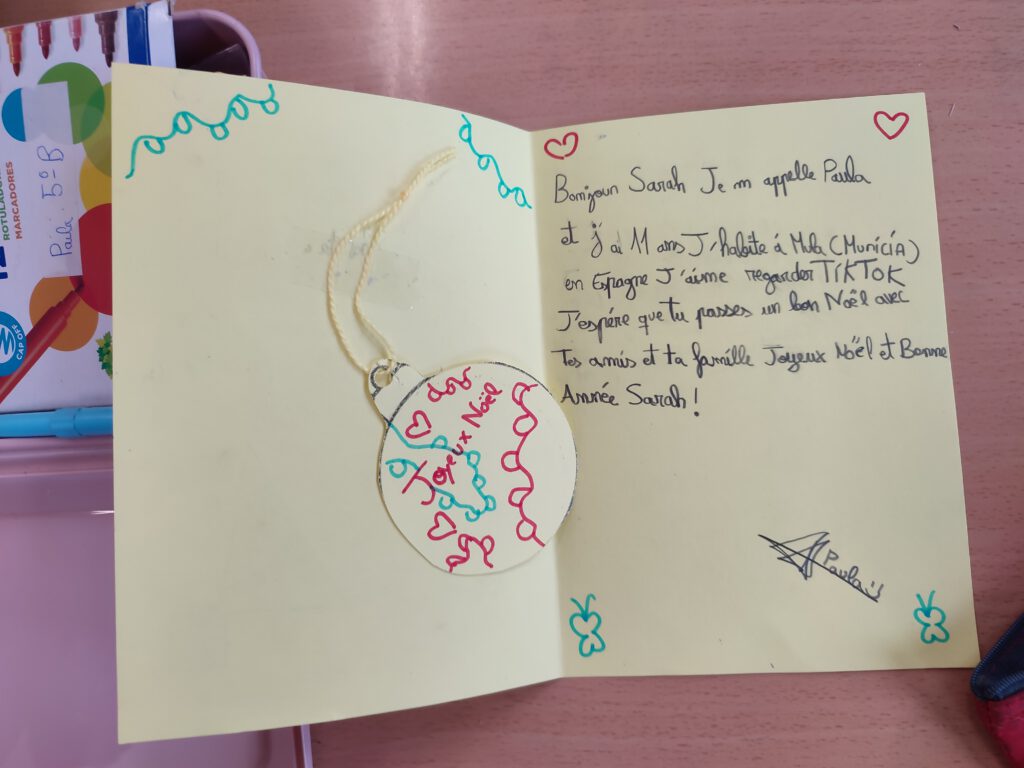 ROTULADORES
MARCADORES
12
5º B
CAP OFF
Joyeux Noël
Bonjour Sarah Je m appelle Paula
et j'ai 11 ans J'habite à Mula (Munícia)
en Espagne J'aime regarder TIKTOK
J'espére que tu passes un bon Noël avec
Tes amis et ta famille Joyeux Noël et Bonne
Année Sarah!
Paula